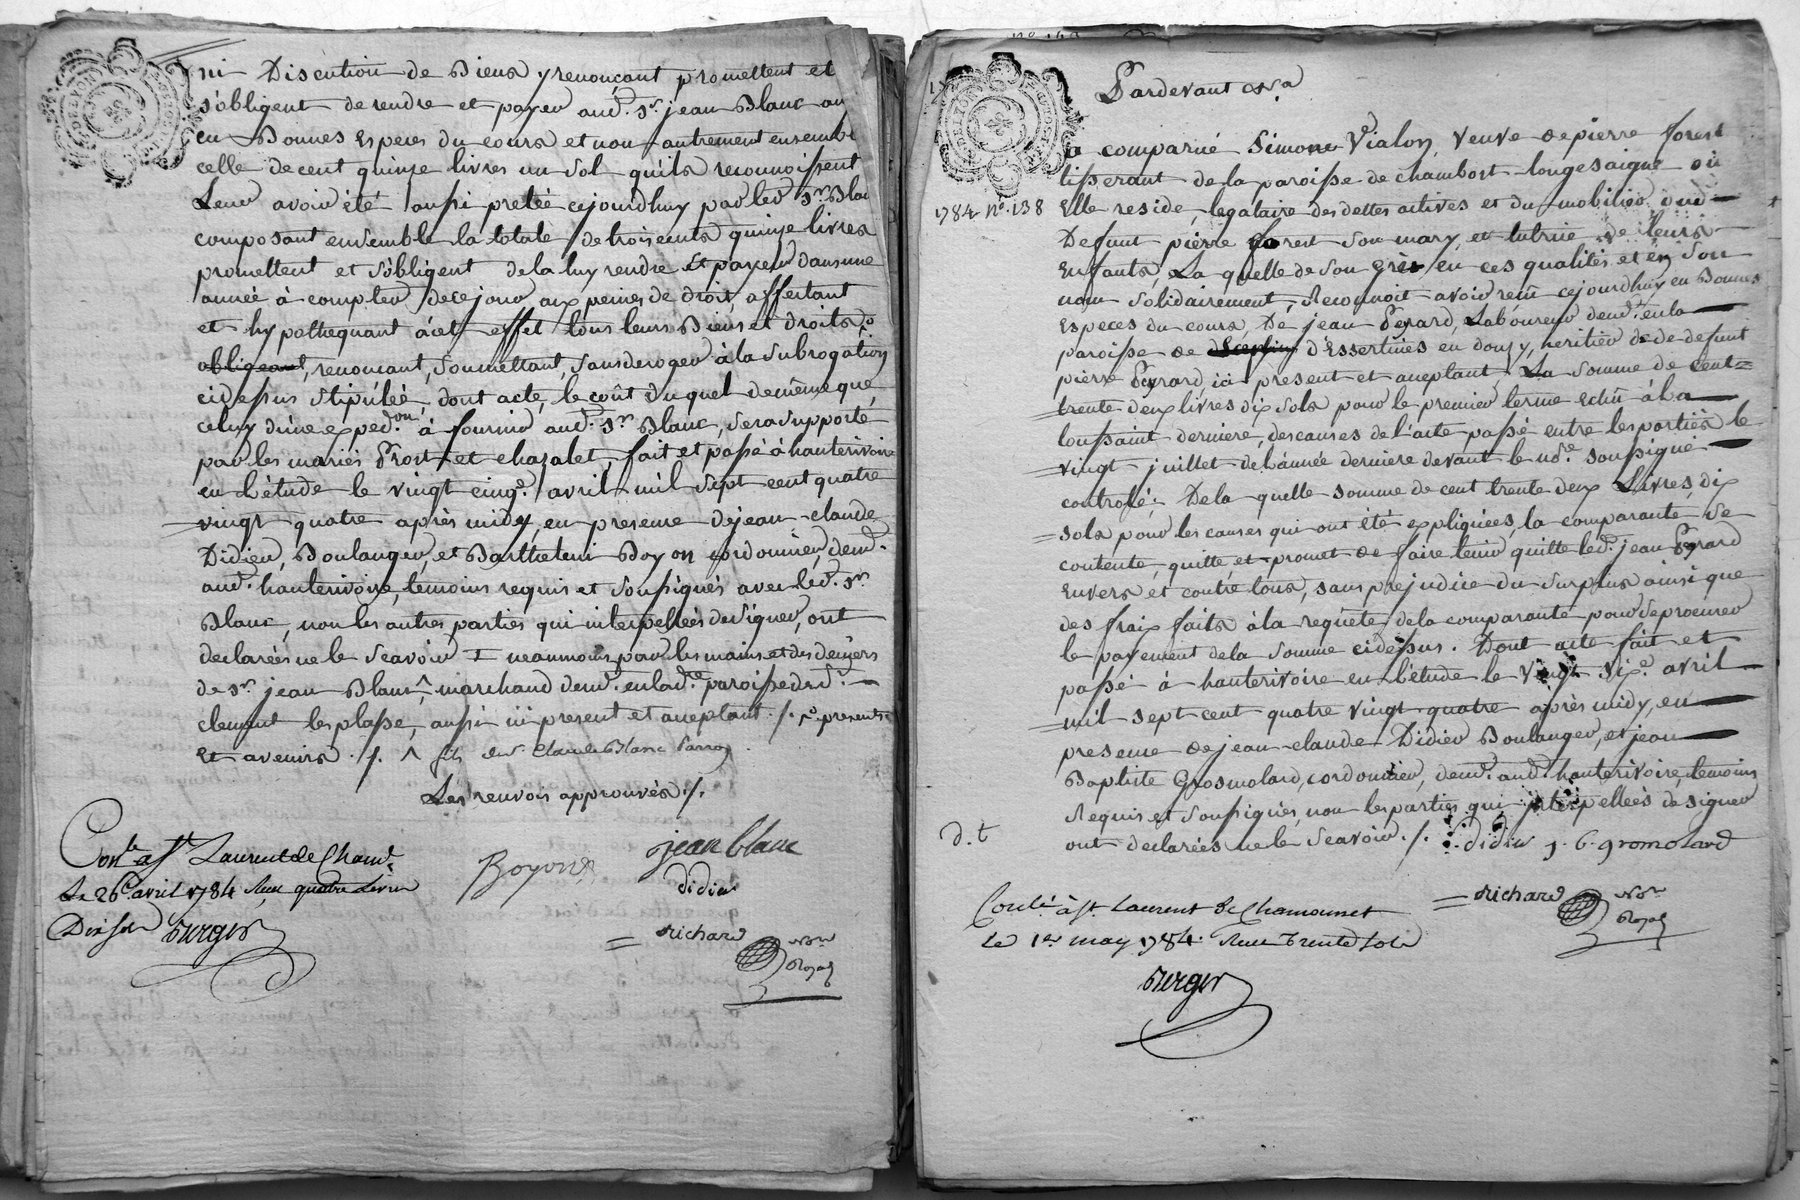 ni Discution de Biens y renonçant, promettent et
s'obligent de rendre et payer aud. Sr. jean Blanc au
en Bonnes Especes du cours et non autrement ensemble
celle de cent quinze livres un sol qu'ils reconnoissent
Leur avoir été aussi pretée cejourdhuy par led. Sr. Blanc
composant ensemble la totale de trois cents quinze livres
promettent et s'obligent de la luy rendre et payer dans une
année à compter de ce jour aux peines de droit, affectant
et hypothequant à cet effet tous leurs Biens et droits
obligeant, renoncant, soumettant, sans deroger à la subrogation
cidessus stipulée, dont acte, le coût duquel de même que
celuy d'une exped.on à fournir aud. Sr. Blanc, sera supporté
par les mariés Proit et chazalet, fait et passé à hauterivoire
en l'étude le vingt cinq.e avril mil sept cent quatre
vingt quatre après midy, en presence de jean claude
Didier, Boulanger, et Barthelemi Boyon cordonnier, dem.t
aud. hauterivoire, temoins requis et soussignés avec led. Sr.
Blanc, non les autres parties qui interpellées de signer, ont
declarées ne le scavoir I neanmoins pour les mains et des deniers
de Sr. jean Blanc ^ marchand dem.t en lad.te paroisse de St.
clement les plasse, aussi ici present et aceptant ./. presents
et avenirs ./. ^ fils de Claude Blanc
Les renvois approuvés ./.
Con.lé a St Laurent de Cham.t
Le 26 avril 1784 Recu quatre Livres
Dix sols verger
Boyon
jean blanc
didier
= Richard No.re
Royal
Pardevant
1784 n°. 138
a comparue Simone Vialon, veuve de pierre forest
tisserant de la paroisse de chambost longesaigne où
Elle reside, legataire des dettes actives et du mobilier dud.
Defunt pierre forest son mary, et tutrice de leurs
Enfants, La quelle de son gré en ces qualités et en son
nom solidairement, Reconnoit avoir recu cejourdhuy en Bonnes
Especes du cours, De jean Peyrard, Laboureur dem.t en la
paroisse de d'Essertines en donzy, heritier de defunt
pierre Peyrard, ici present et aceptant La somme de cent
trente deux livres dix sols pour le premier terme echu à la
toussaint derniere, des causes de l'acte passé entre les parties le
vingt juillet de l'année derniere devant le no.re soussigné
controlé, De la quelle somme de cent trente deux Livres, dix
sols pour les causes qui ont été expliquées, la comparante se
contente, quitte et promet de faire tenir quitte led. jean Peyrard
Envers et contre tous, sans prejudice du surplus ainsi que
des fraix faits à la requête de la comparante pour se procurer
le payement de la somme cidessus. Dont acte fait et
passé à hauterivoire en l'étude le vingt six.e avril
mil sept cent quatre vingt quatre après midy, en
presence de jean claude Didier Boulanger, et jean
Baptiste Grosmolard, cordonnier, dem.t aud. hauterivoire, temoins
Requis et soussignés, non les parties qui interpellées de signer
ont declarées ne le scavoir ./. didier j. b. gromolard
d. t
= Richard No.re
Royal
Con.lé à St. Laurent de Chamousset
Le 1er may 1784. Recu Trente Sols
verger